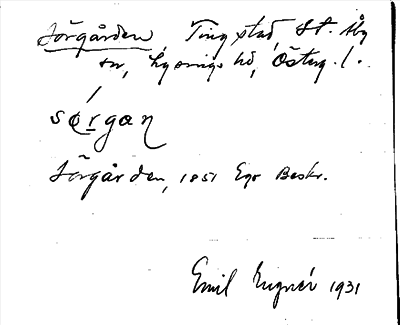 Sörgården Tingstad, St. Åby
sn, Lysings hd, Österg. l.
sǿrgan
Sörgården, 1851 Ego Beskr.
Emil Eugnér 1931